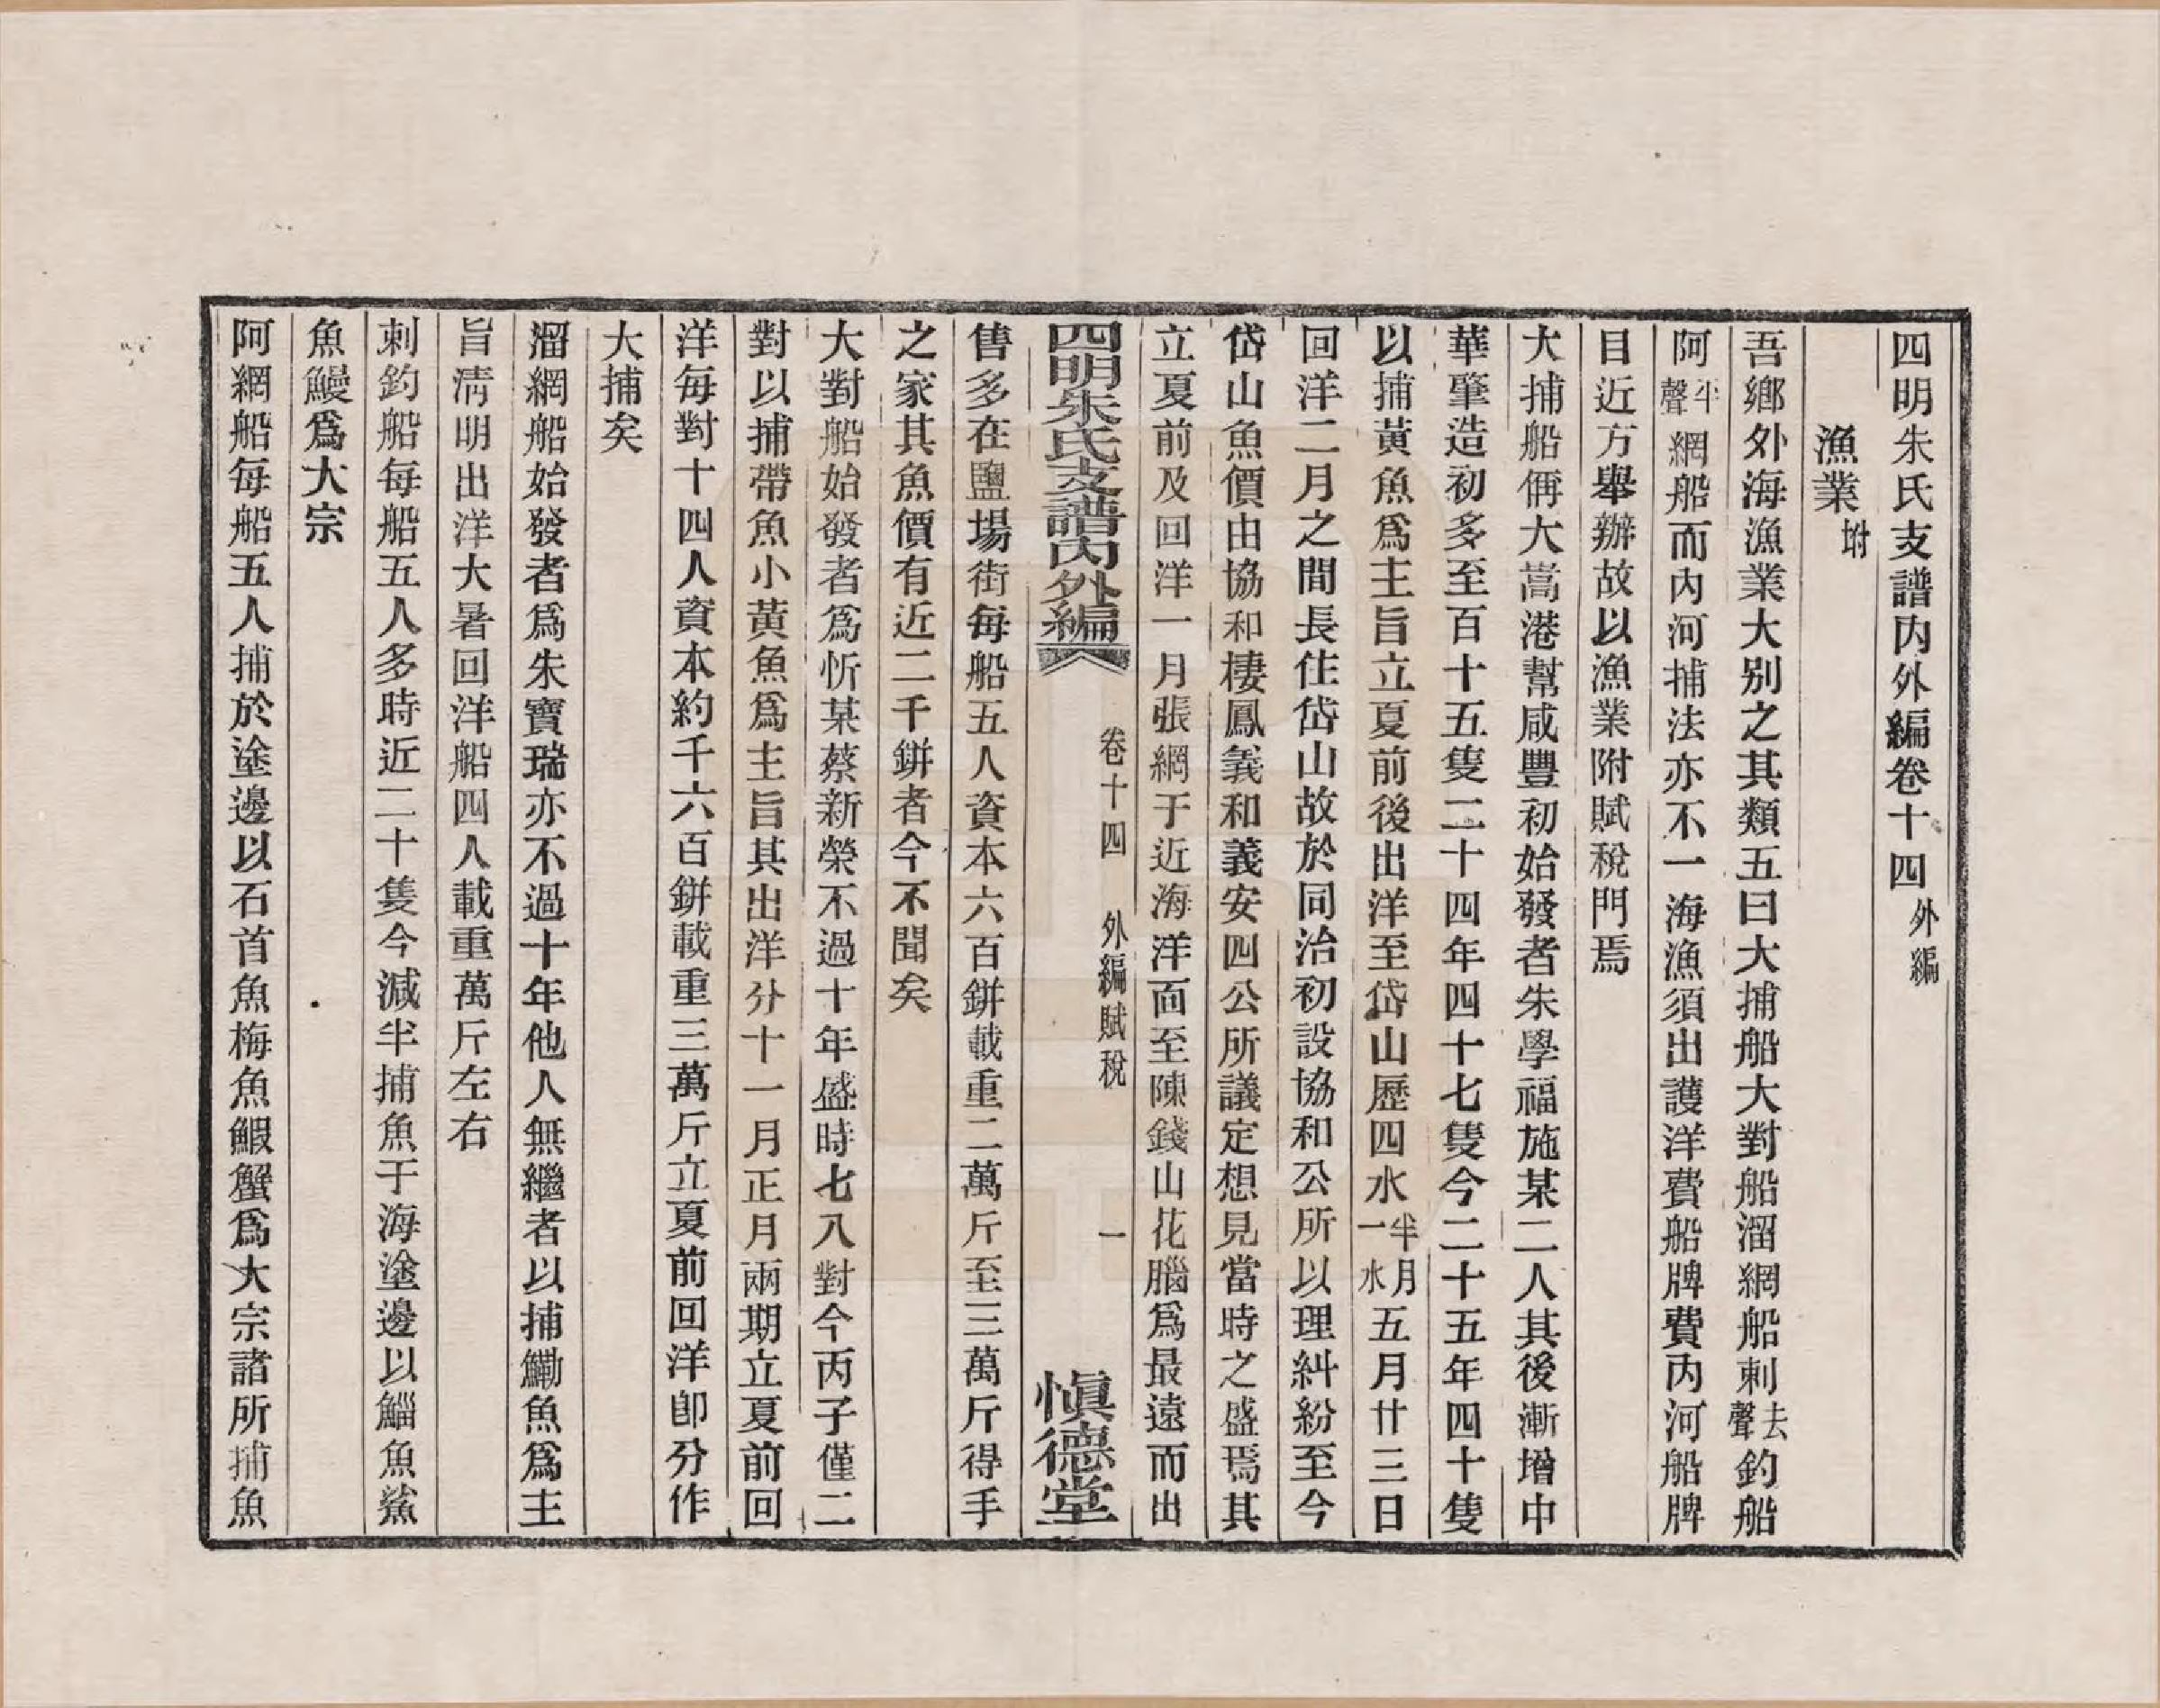 四明朱氏支譜内外編卷十四外編
漁業坿
吾鄉外海漁業大别之其類五曰大捕船大對船溜網船刺去聲釣船
阿平聲網船而内河捕法亦不一海漁須出護洋費船牌費内河船牌
目近方舉辦故以漁業附賦稅門焉
大捕船偁大嵩港幫咸豐初始發者朱學福施某二人其後漸增中
華肇造初多至百十五隻二十四年四十七隻今二十五年四十隻
以捕黃魚爲主旨立夏前後出洋至岱山歷四水半月一水五月廿三日
回洋二月之間長住岱山故於同治初設協和公所以理糾紛至今
岱山魚價由協和棲鳳義和義安四公所議定想見當時之盛焉其
立夏前及回洋一月張網于近海洋面至陳錢山花腦爲最遠而出
四明朱氏支譜内外編
卷十四
外編賦稅
一
慎德堂
售多在鹽場街每船五人資本六百餅載重二萬斤至三萬斤得手
之家其魚價有近二千餅者今不聞矣
大對船始發者爲忻某蔡新榮不過十年盛時七八對今丙子僅二
對以捕帶魚小黃魚爲主旨其出洋分十一月正月兩期立夏前回
洋每對十四人資本約千六百餅載重三萬斤立夏前回洋卽分作
大捕矣
溜網船始發者爲朱寶瑞亦不過十年他人無繼者以捕鰳魚爲主
旨清明出洋大暑回洋船四人載重萬斤左右
刺釣船每船五人多時近二十隻今減半捕魚于海塗邊以鯔魚鯊
魚鰻爲大宗
阿網船每船五人捕於塗邊以石首魚梅魚鰕蟹爲大宗諸所捕魚